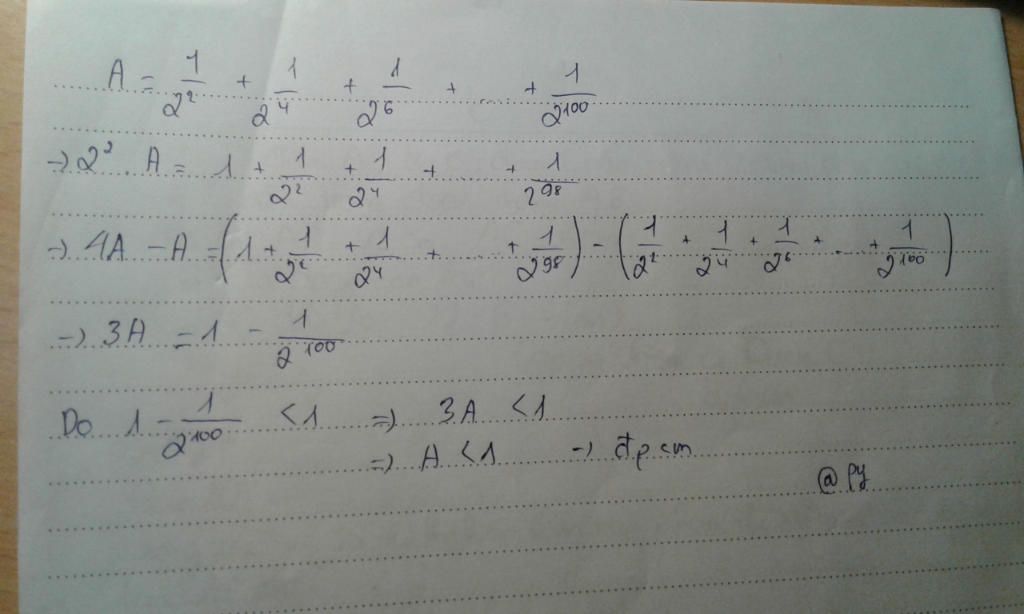 A = 1/2² + 1/2⁴ + 1/2⁶ + ... + 1/2¹⁰⁰
→ 2² . A = 1 + 1/2² + 1/2⁴ + ... + 1/2⁹⁸
→ 4A - A = (1 + 1/2² + 1/2⁴ + ... + 1/2⁹⁸) - (1/2² + 1/2⁴ + 1/2⁶ + ... + 1/2¹⁰⁰)
→ 3A = 1 - 1/2¹⁰⁰
Do 1 - 1/2¹⁰⁰ < 1 => 3A < 1
=> A < 1 → đpcm
@Py